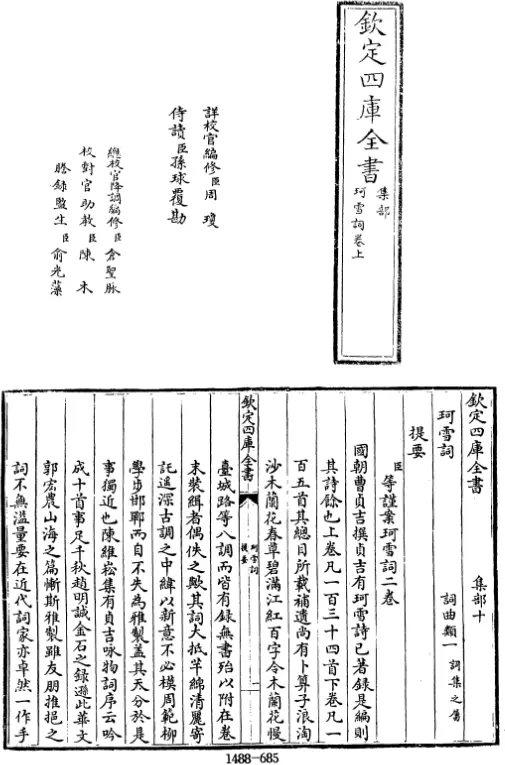 欽定四庫全書
集部
珂雪詞卷上
詳校官編修臣周瓊
侍讀臣孫球覆勘
總校官降調編修臣倉聖脉
校對官助教臣陳木
謄錄監生臣俞光藻
欽定四庫全書
集部十
珂雪詞
詞曲類一
詞集之屬
提要
臣等謹案珂雪詞二卷
國朝曹貞吉撰貞吉有珂雪詩已著錄是編則
其詩餘也上卷凡一百三十四首下卷凡一
百五首其總目所載補遺尚有卜算子浪淘
沙木蘭花春草碧滿江紅百字令木蘭花慢
臺城路等八調而皆有錄無書殆以附在卷
末裝緝者偶佚之歟其詞大抵芊綿清麗寄
託遥深古調之中緯以新意不必模周範柳
學步邯鄲而自不失為雅製蓋其天分於是
事獨近也陳維崧集有貞吉咏物詞序云吟
成十首事足千秋趙明誠金石之錄遜此華文
郭宏農山海之篇慚斯雅製雖友朋推挹之
詞不無溢量要在近代詞家亦卓然一作手
欽定四庫全書
珂雪詞
提要
一
1488-685